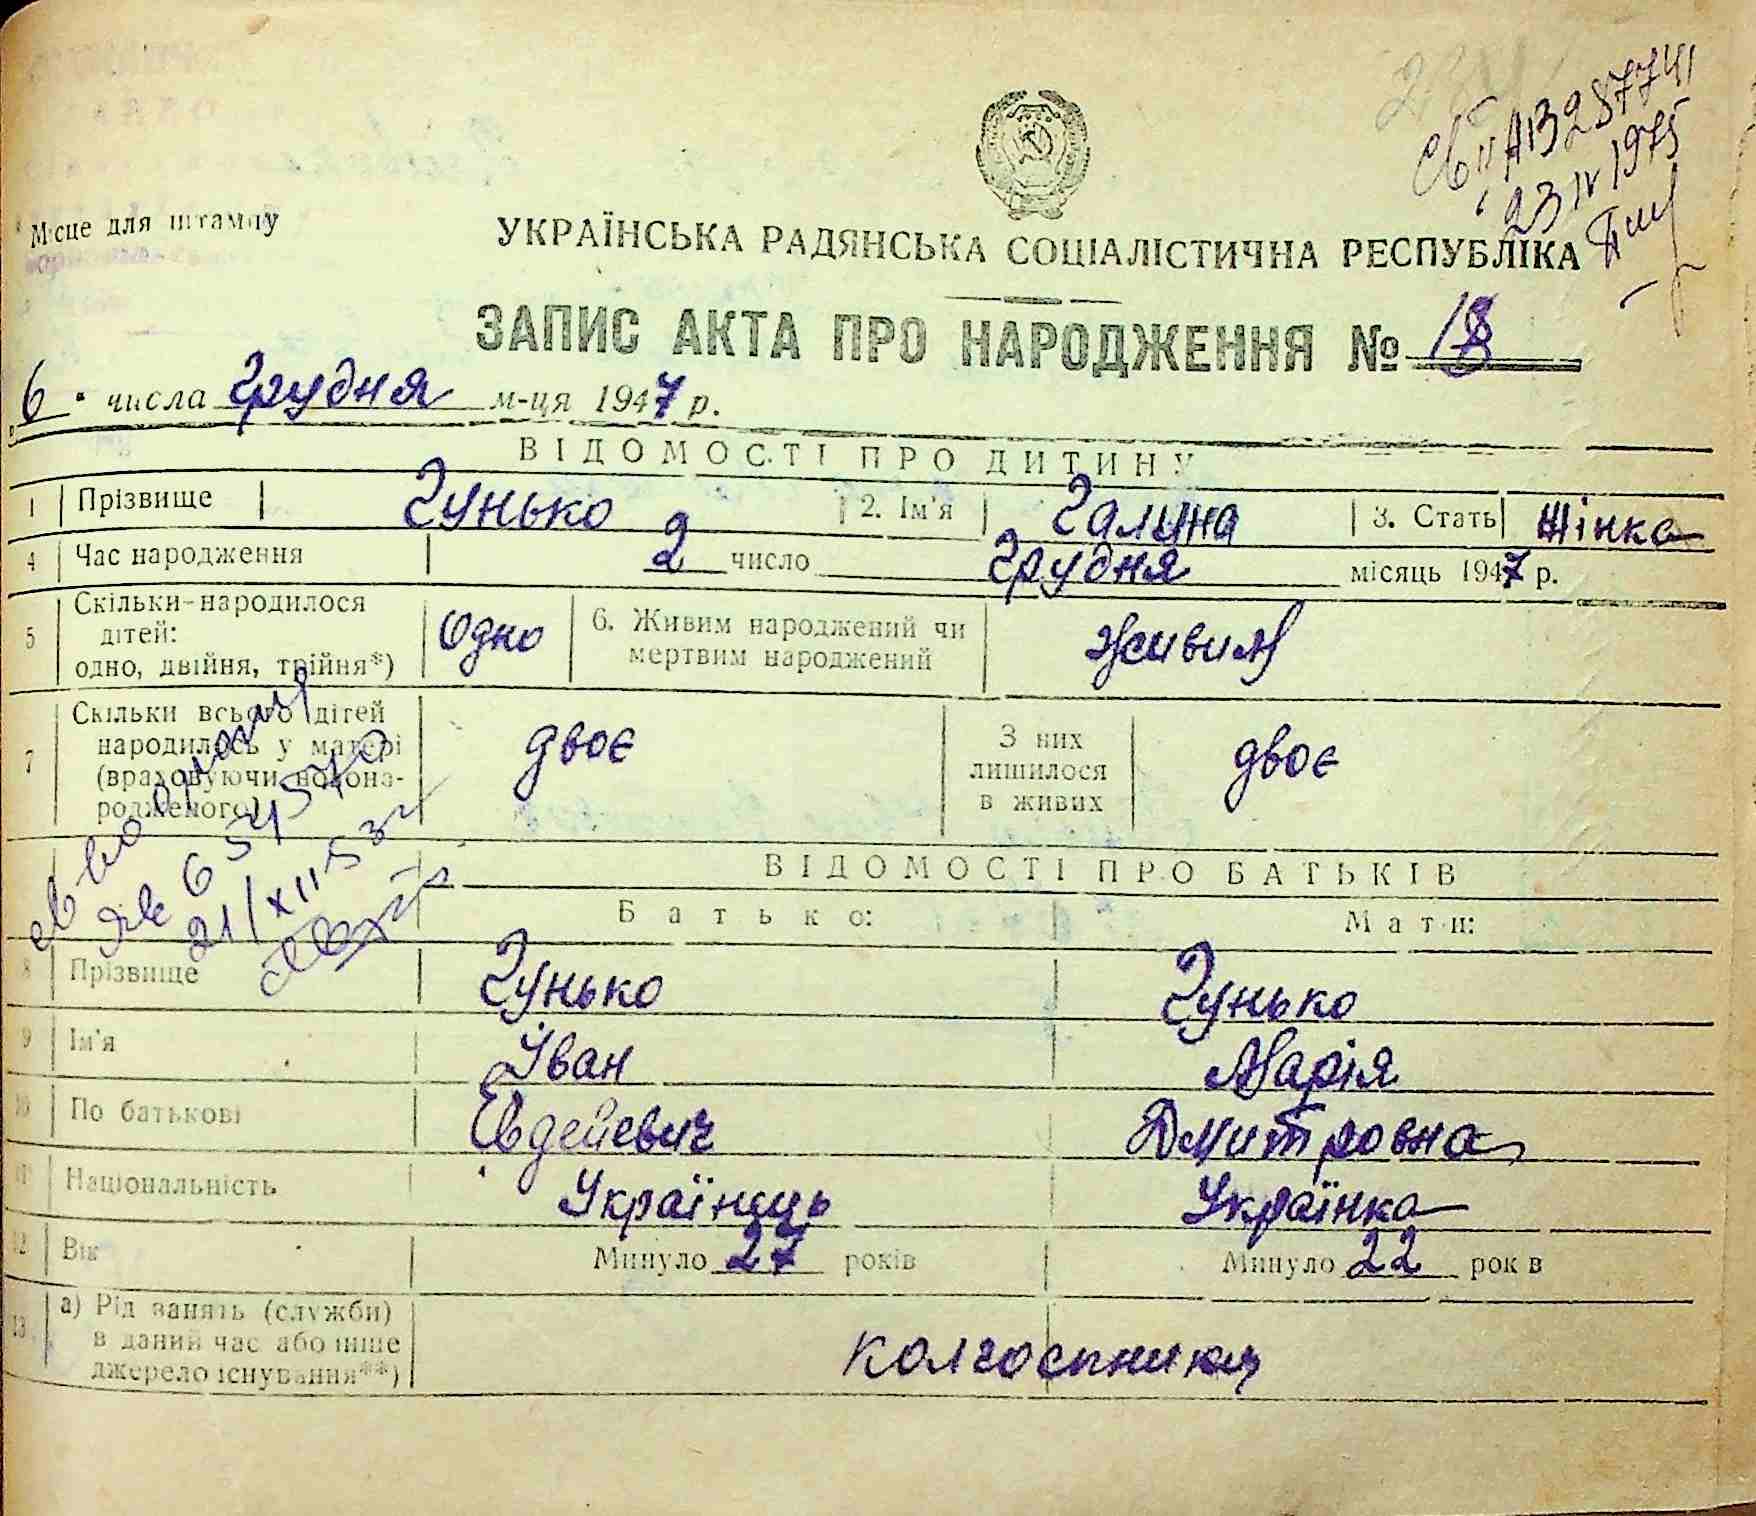 Св II АБ 287741
23 IV 1975
Місце для штампу
УКРАЇНСЬКА РАДЯНСЬКА СОЦІАЛІСТИЧНА РЕСПУБЛІКА
ЗАПИС АКТА ПРО НАРОДЖЕННЯ № 18
6 числа Грудня м-ця 1947 р.
ВІДОМОСТІ ПРО ДИТИНУ
1 Прізвище Гунько 2. Ім'я Галина 3. Стать Жінка
4 Час народження 2 число Грудня місяць 1947 р.
5 Скільки народилося дітей: одно, двійня, трійня*) Одно 6. Живим народжений чи мертвим народжений живим
7 Скільки всього дітей народилось у матері (враховуючи новонародженого) двоє З них лишилося в живих двоє
21/XII 53
ВІДОМОСТІ ПРО БАТЬКІВ
Батько: Мати:
8 Прізвище Гунько Гунько
9 Ім'я Іван Марія
10 По батькові Евдейевич Дмитровна
11 Національність Українець Українка
12 Вік Минуло 27 років Минуло 22 рок в
13 а) Рід занять (служби) в даний час або інше джерело існування**) колгоспники